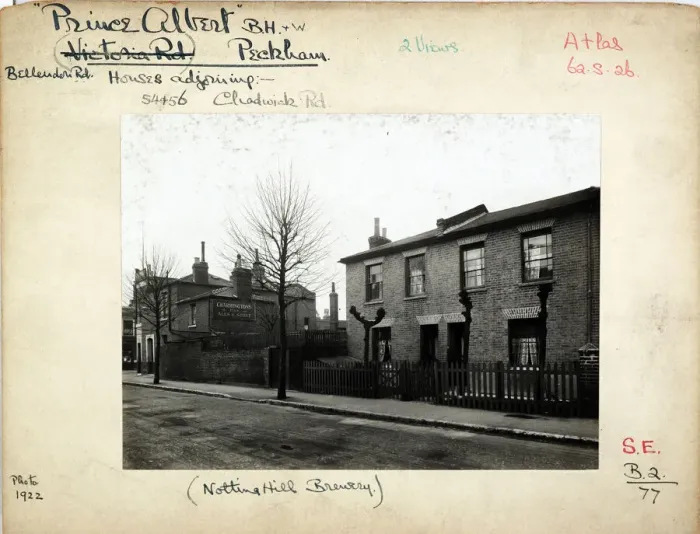 "Prince Albert" B.H. + W
Victoria Rd. Peckham.
Bellenden Rd. Houses adjoining:-
54456 Chadwick Rd.
2 Views.
Atlas
62.S.26.
S.E.
B.2.
77
Photo
1922
(Notting Hill Brewery.)